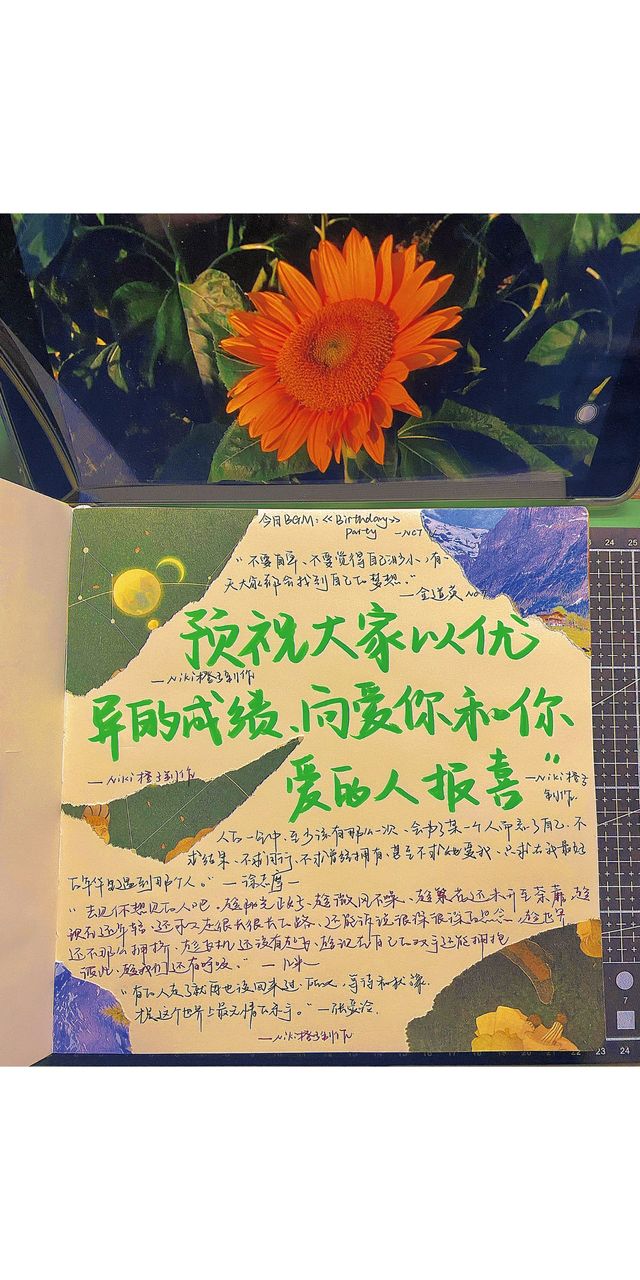 今日BGM:《Birthday
Party》 —NCT
"不要自卑、不要觉得自己渺小、有一
天大家都会找到自己的梦想."
—金道英 NCT
预祝大家以优
—Niki橙子制作
异的成绩、向爱你和你
—Niki橙子制作
爱的人报喜"
—Niki橙子
制作.
人在一生中、至少该有那么一次、会为了某一个人而忘了自己、不
求结果、不求同行、不求曾经拥有、甚至不求她爱我、只求在我最好
的年华里遇到那个人。"—徐志摩—
"去见你想见的人吧、趁阳光正好、趁微风不噪、趁繁花还未开至荼蘼、趁
现在还年轻、还可以走很长很长的路、还能诉说很深很深的思念、趁世界
还不那么拥挤、趁飞机还没有起飞、趁现在自己的双手还能拥抱
彼此、趁我们还有呼吸。"
"有的人走了就再也没回来过、所以、等待和犹豫、
才是这个世界上最无情的杀手。"—张爱玲.
—Niki橙子制作
7
24
25
22
23
24